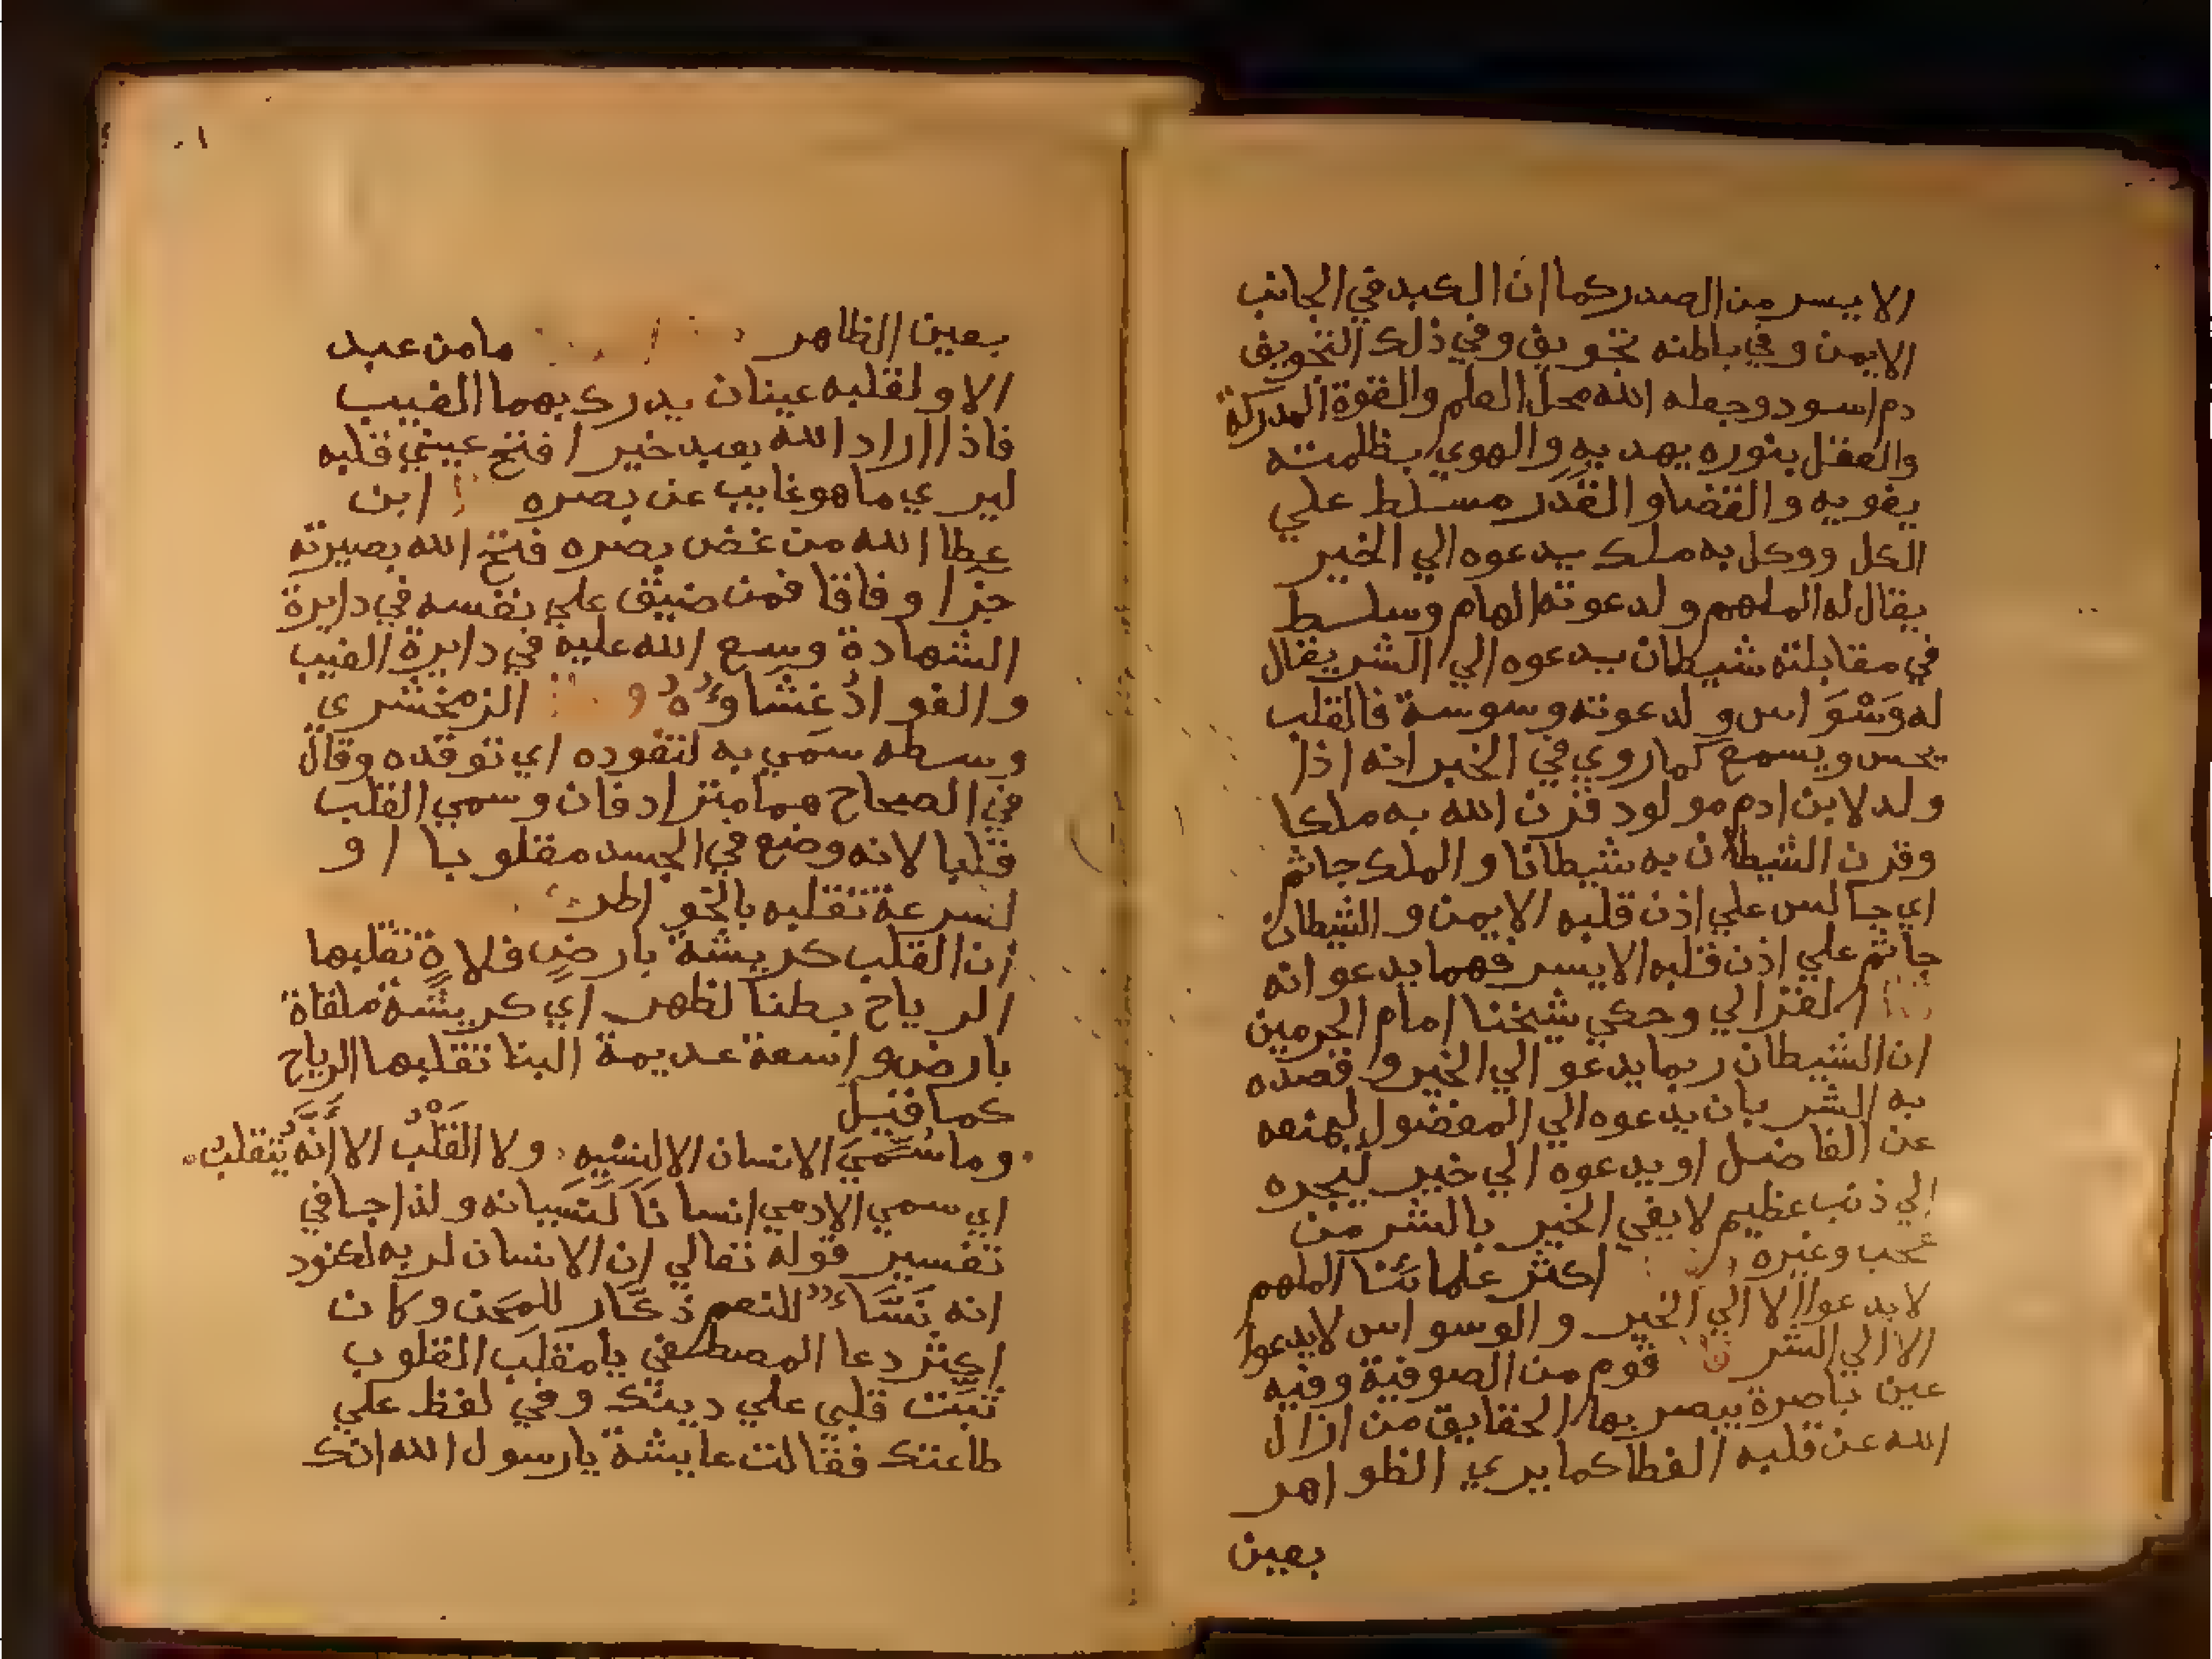 الايسر من الصدر كما ان الكبد في الجانب
الايمن وفي باطنه تجويف وفي ذلك التجويف
دم اسود وجعله الله محل العلم والقوة المدركة
والعقل بنوره يهديه والهوي بظلمته
يغويه والقضا والقدر مسلط علي
الكل ووكل به ملك يدعوه الي الخير
يقال له الملهم ولدعوته الهام وسلط
في مقابلته شيطان يدعوه الي الشر يقال
له وسواس ولدعوته وسوسة فالقلب
يحس ويسمع كما روي في الخبر انه اذا
ولد لابن ادم مولود قرن الله به ملكا
وقرن الشيطان به شيطانا والملك جاثم
اي جالس علي اذن قلبه الايمن والشيطان
جاثم علي اذن قلبه الايسر فهما يدعوانه
الغزالي وحكي شيخنا امام الحرمين
ان الشيطان ربما يدعو الي الخير وقصده
به الشر بان يدعوه الي المفضول ليمنعه
عن الفاضل او يدعوه الي خير ليجره
الي ذنب عظيم لا يفي الخير بالشر من
عجب وغيره اكثر علمائنا الملهم
لا يدعوا الا الي الخير والوسواس لا يدعوا
الا الي الشر قوم من الصوفية وفيه
عين باصرة يبصر بها الحقايق من ازال
الله عن قلبه الغطا كما يري الظواهر
بعين
بعين الظاهر ما من عبد
الا ولقلبه عينان يدرك بهما الغيب
فاذا اراد الله بعبد خيرا فتح عيني قلبه
ليري ما هو غايب عن بصره ابن
عطا الله من غض بصره فتح الله بصيرته
جزا وفاقا فمن ضيق علي نفسه في دايرة
الشهادة وسع الله عليه في دايرة الغيب
والفواد غشاوه الزمخشري
وسطه سمي به لتفوده اي توقده وقال
في الصحاح هما مترادفان وسمي القلب
قلبا لانه وضع في الجسد مقلوبا او
لسرعة تقلبه بالخواطر
ان القلب كريشة بارض فلاة تقلبها
الرياح بطنا لظهر اي كريشة ملقاة
بارض واسعة عديمة البنا تقلبها الرياح
كما قيل
وما سُمِّيَ الانسان الا لنسيه ولا القَلْبُ الا انَّهُ يتقلب
اي سمي الادمي انسانا لنسيانه ولذا جا في
تفسير قوله تعالي ان الانسان لربه لكنود
انه نَسَّاءٌ للنعم ذكَّار للمِحَن وكان
اكثر دعا المصطفي يا مقلب القلوب
ثبت قلبي علي دينك وفي لفظ علي
طاعتك فقالت عايشة يا رسول الله انك